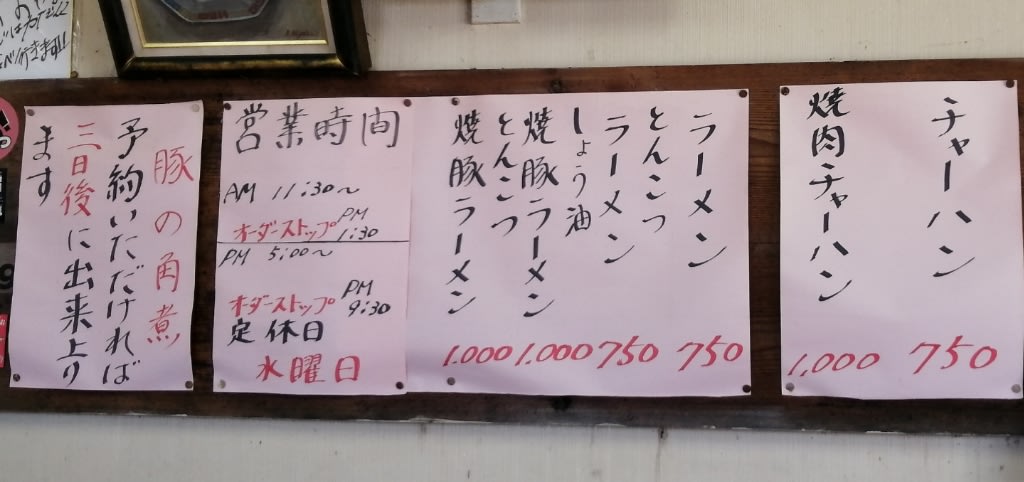 チャーハン
750
焼肉チャーハン
1,000
ラーメン
750
とんこつ
ラーメン
750
しょう油
焼豚ラーメン
1.000
とんこつ
焼豚ラーメン
1.000
営業時間
AM 11:30～
オーダーストップ PM 1:30
PM 5:00～
オーダーストップ PM 9:30
定休日
水曜日
豚の角煮
予約いただければ
三日後に出来上り
ます